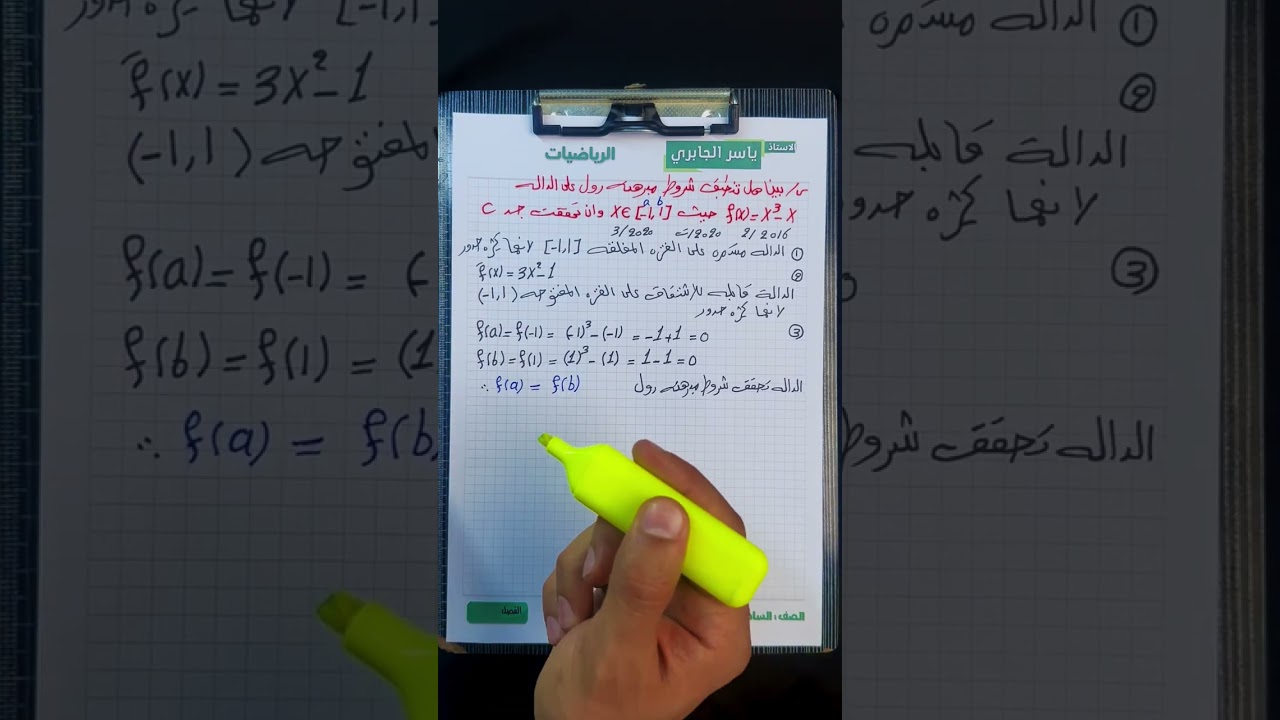 الاستاذ ياسر الجابري الرياضيات
س/ بين هل تنطبق شروط مبرهنه رول على الداله
f(x)=x³-x حيث x∈[-1,1] وان تحققت جد C
a b
2/2016 ت/2020 3/2020
① الداله مستمره على الفتره المغلقه [-1,1] لانها كثيرة حدود
② f̄(x)=3x²-1
الدالة قابله للإشتقاق على الفتره المفتوحه (-1,1)
لانها كثيره حدود
③ f(a)=f(-1)=(-1)³-(-1)=-1+1=0
f(b)=f(1)=(1)³-(1)=1-1=0
∴ f(a)=f(b) الداله تحقق شروط مبرهنه رول
الفصل